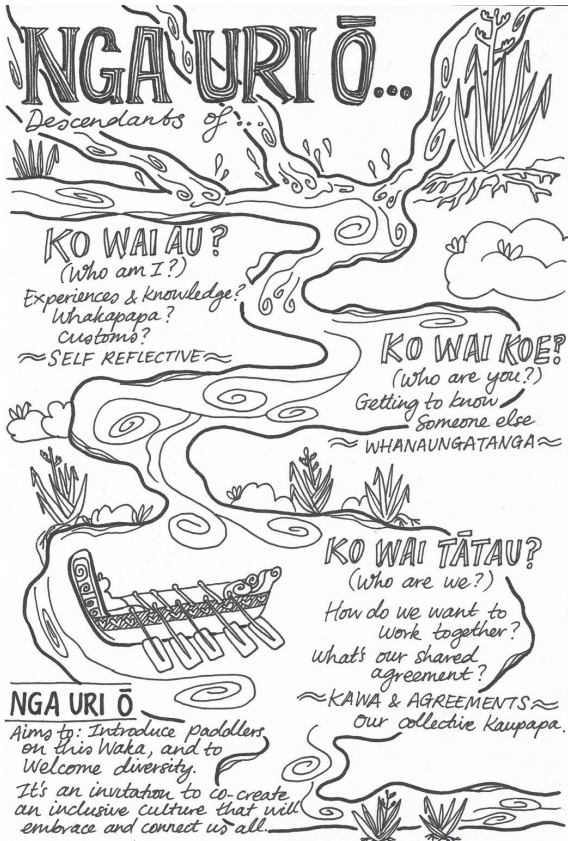 NGA URI Ō...
Descendants of...
KO WAI AU?
(Who am I?)
Experiences & Knowledge?
Whakapapa?
Customs?
~SELF REFLECTIVE~
KO WAI KOE?
(Who are you?)
Getting to know
Someone else
~WHANAUNGATANGA~
KO WAI TĀTAU?
(Who are we?)
How do we want to
work together?
What's our shared
agreement?
~KAWA & AGREEMENTS~
our collective Kaupapa.
NGA URI Ō
Aims to: Introduce Paddlers
on this Waka, and to
Welcome diversity.
It's an invitation to co-create
an inclusive culture that will
embrace and connect us all.